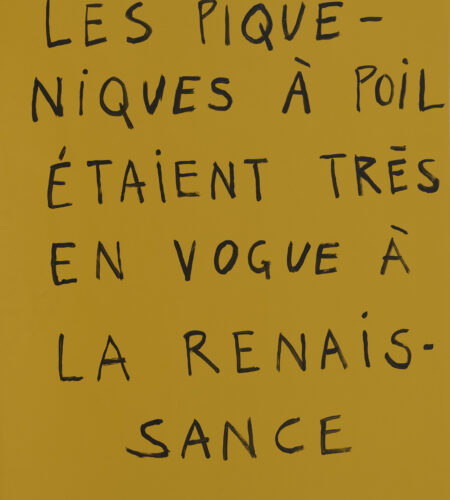 LES PIQUE-
NiQUES À POiL
ÉTAiENT TRÈS
EN VOGUE À
LA RENAiS-
SANCE